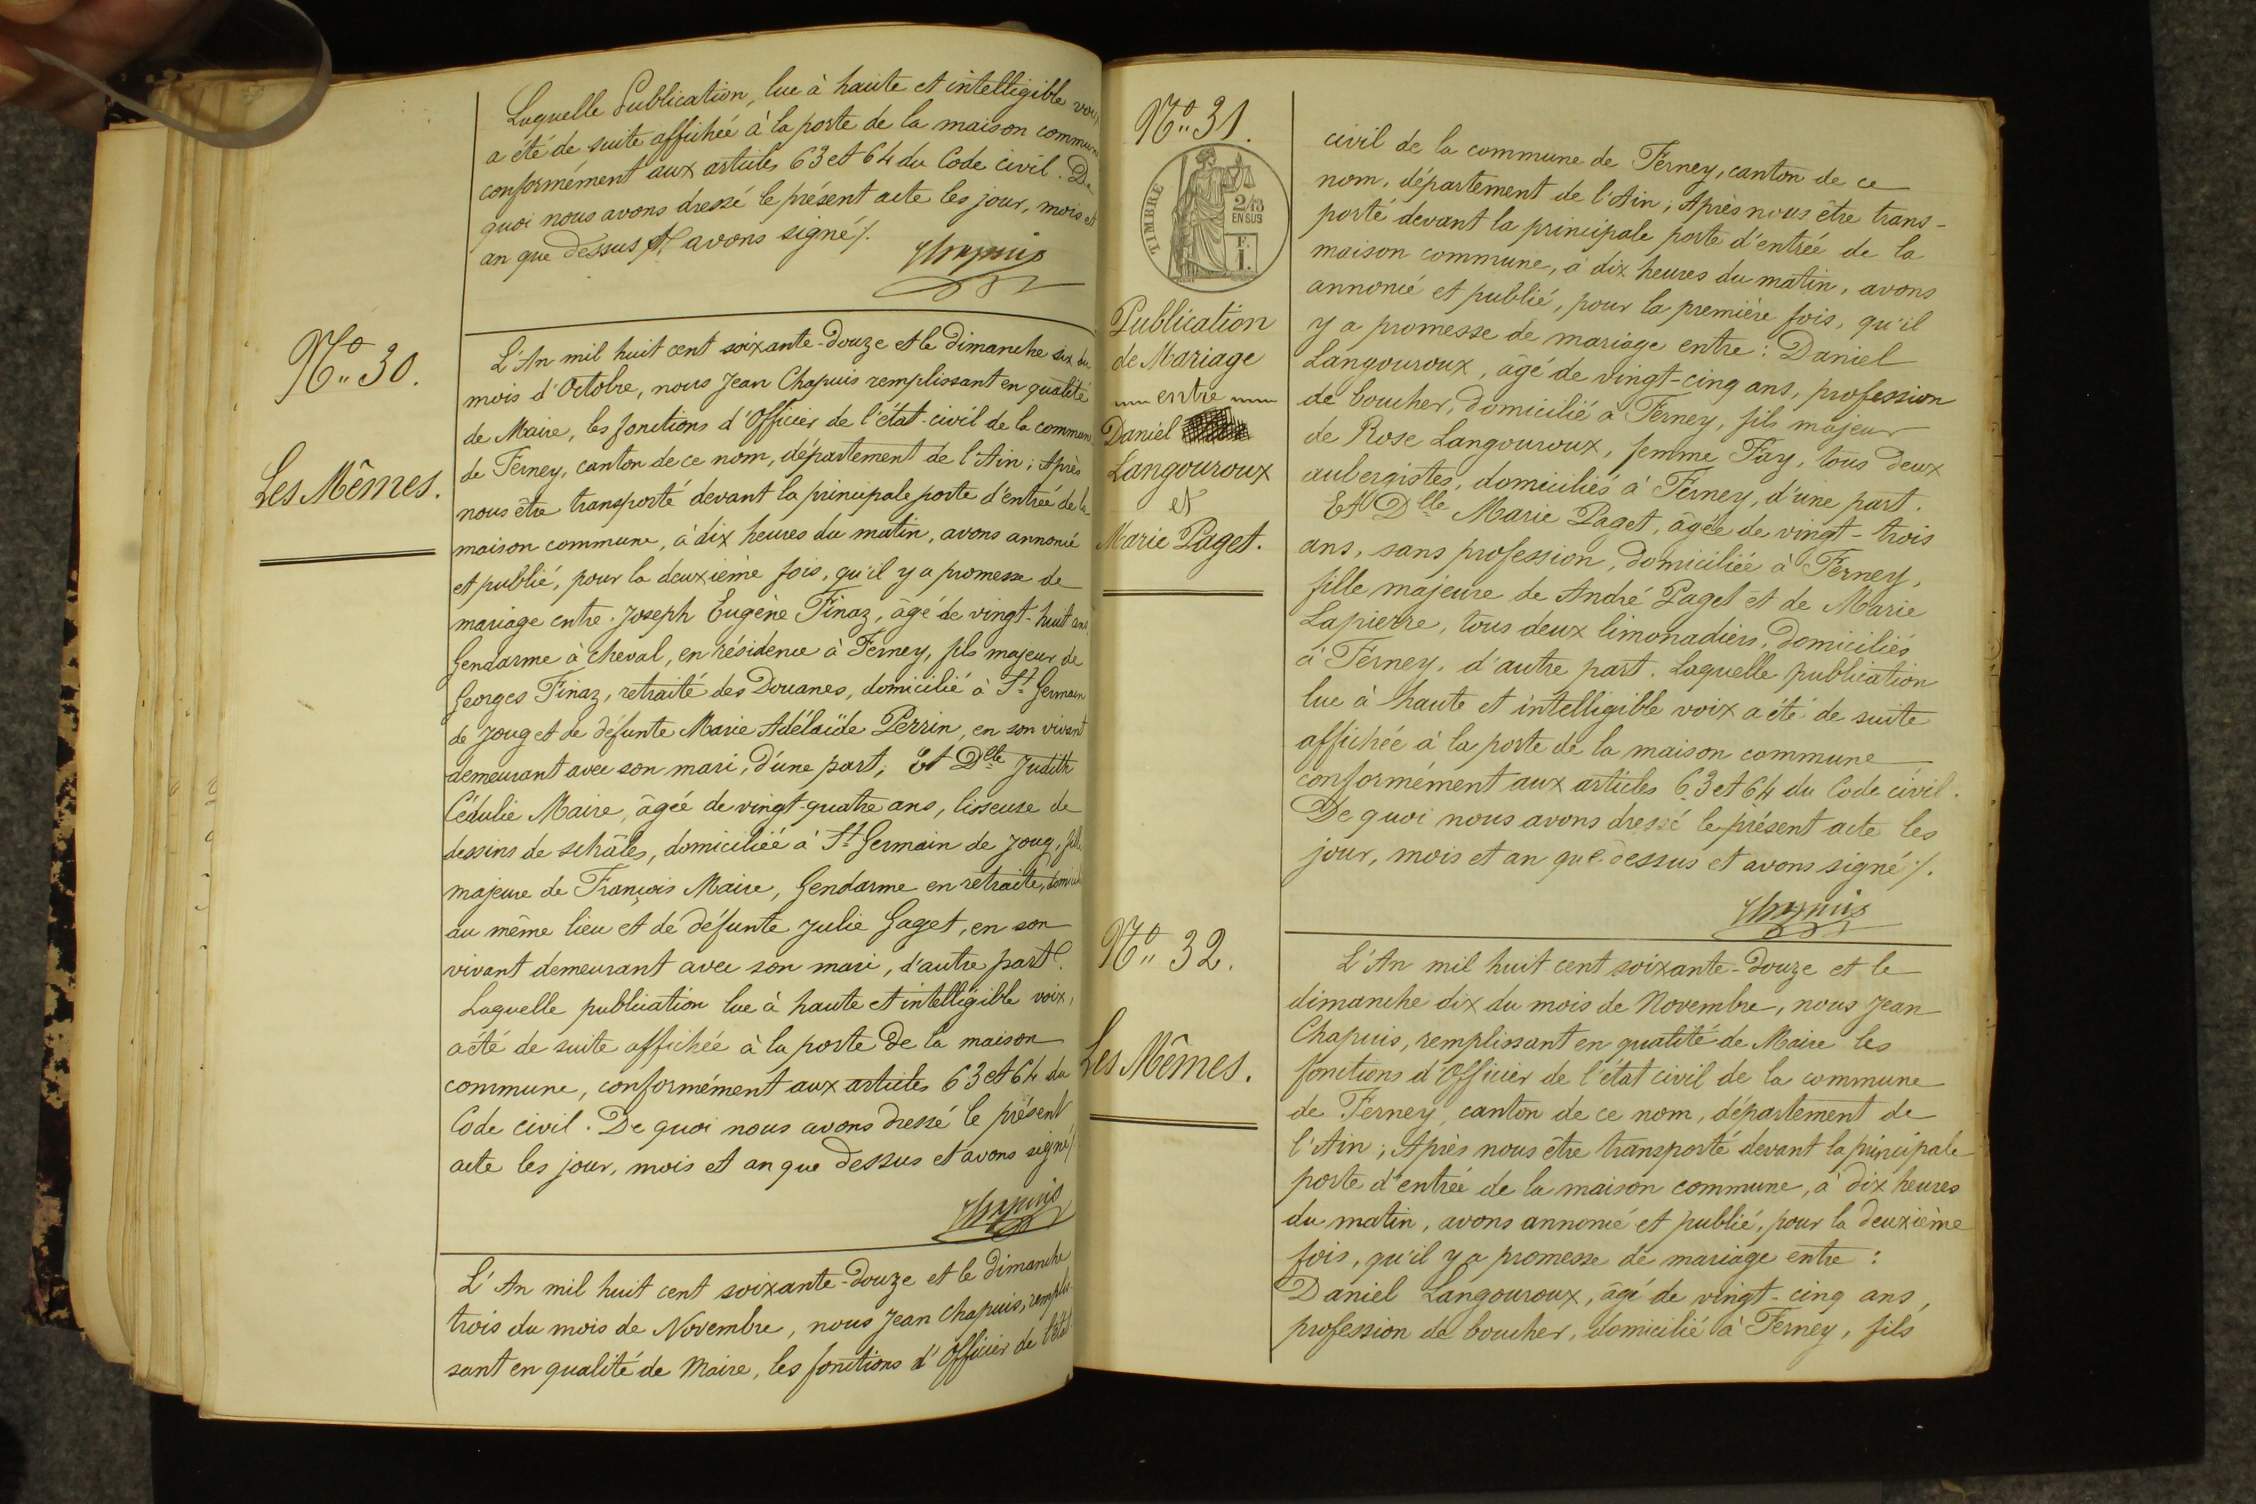 Laquelle Publication, lue à haute et intelligible voix
a été de suite affichée à la porte de la maison commune
conformément aux articles 63 et 64 du Code civil. De
quoi nous avons dressé le présent acte les jour, mois et
an que dessus et avons signé/.
Chapuis
N° 30.
Les Mêmes.
L'An mil huit cent soixante-douze et le dimanche six du
mois d'Octobre, nous Jean Chapuis remplissant en qualité
de Maire, les fonctions d'Officier de l'état-civil de la commune
de Ferney, canton de ce nom, département de l'Ain; Après
nous être transporté devant la principale porte d'entrée de la
maison commune, à dix heures du matin, avons annoncé
et publié, pour la deuxième fois, qu'il y a promesse de
mariage entre. Joseph Eugène Finaz, âgé de vingt-huit ans,
Gendarme à cheval, en résidence à Ferney, fils majeur de
Georges Finaz, retraité des Douanes, domicilié à St Germain
de Joug et de défunte Marie Adélaïde Perrin, en son vivant
demeurant avec son mari, d'une part; Et Dlle Judith
Cédulie Maire, âgée de vingt-quatre ans, lisseuse de
dessins de schâles, domiciliée à St Germain de Joug, fille
majeure de François Maire, Gendarme en retraite, domicilié
au même lieu et de défunte Julie Gaget, en son
vivant demeurant avec son mari, d'autre part.
Laquelle publication lue à haute et intelligible voix,
a été de suite affichée à la porte de la maison
commune, conformément aux articles 63 et 64 du
Code civil. De quoi nous avons dressé le présent
acte les jour, mois et an que dessus et avons signé/
Chapuis
L'An mil huit cent soixante-douze et le dimanche
trois du mois de Novembre, nous Jean Chapuis, remplis-
sant en qualité de Maire, les fonctions d'Officier de l'état
N° 31.
TIMBRE
2/10
EN SUS
F.
I.
Publication
de Mariage
entre
Daniel
Langouroux
et
Marie Paget.
civil de la commune de Ferney, canton de ce
nom, département de l'Ain; Après nous être trans-
porté devant la principale porte d'entrée de la
maison commune, à dix heures du matin, avons
annoncé et publié, pour la première fois, qu'il
y a promesse de mariage entre: Daniel
Langouroux, âgé de vingt-cinq ans, profession
de boucher, domicilié à Ferney, fils majeur
de Rose Langouroux, femme Fay, tous deux
aubergistes, domiciliés à Ferney, d'une part.
Et Dlle Marie Paget, âgée de vingt-trois
ans, sans profession, domiciliée à Ferney,
fille majeure de André Paget et de Marie
Lapierre, tous deux limonadiers, domiciliés
à Ferney, d'autre part. Laquelle publication
lue à haute et intelligible voix a été de suite
affichée à la porte de la maison commune
conformément aux articles 63 et 64 du Code civil.
De quoi nous avons dressé le présent acte les
jour, mois et an que dessus et avons signé/.
Chapuis
N° 32.
Les Mêmes.
L'An mil huit cent soixante-douze et le
dimanche dix du mois de Novembre, nous Jean
Chapuis, remplissant en qualité de Maire les
fonctions d'Officier de l'état civil de la commune
de Ferney, canton de ce nom, département de
l'Ain; Après nous être transporté devant la principale
porte d'entrée de la maison commune, à dix heures
du matin, avons annoncé et publié, pour la deuxième
fois, qu'il y a promesse de mariage entre:
Daniel Langouroux, âgé de vingt-cinq ans,
profession de boucher, domicilié à Ferney, fils